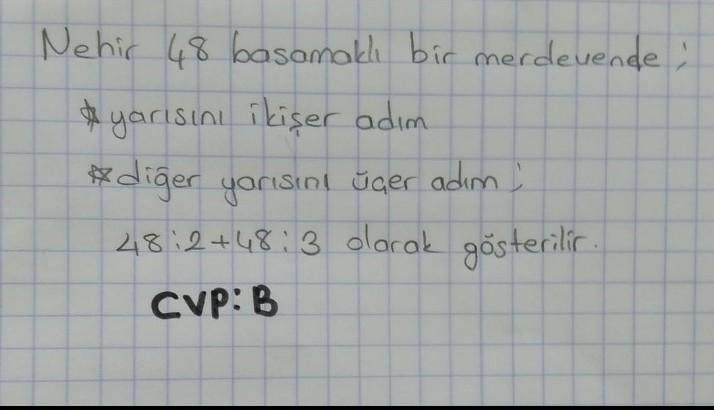 Nehir 48 basamaklı bir merdevende ;
* yarısını ikişer adım
* diğer yarısını üçer adım ;
48:2+48:3 olarak gösterilir.
CVP: B